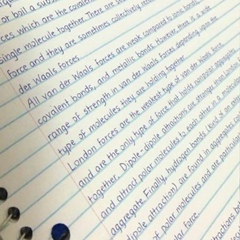 or boil a subs
ces which are the covalen
single molecule together. There are
force and they are sometimes collectively
der Waals forces.
All van der Waals forces are weak compared to ionic bonds,
covalent bonds, and metallic bonds. However, there is a wide
range of strength in van der Waals forces depending upon the
type of molecules they are holding together.
London forces are the weakest type of van der Waals force
and are the only type of force that holds nonpolar aggregates
together. Dipole-dipole attractions are stronger than London
and attract polar molecules to each other in a molecular
aggregate. Finally, hydrogen bonds (a kind of
dipole attraction) are found in aggregates
of polar molecules and are particular
lar force.